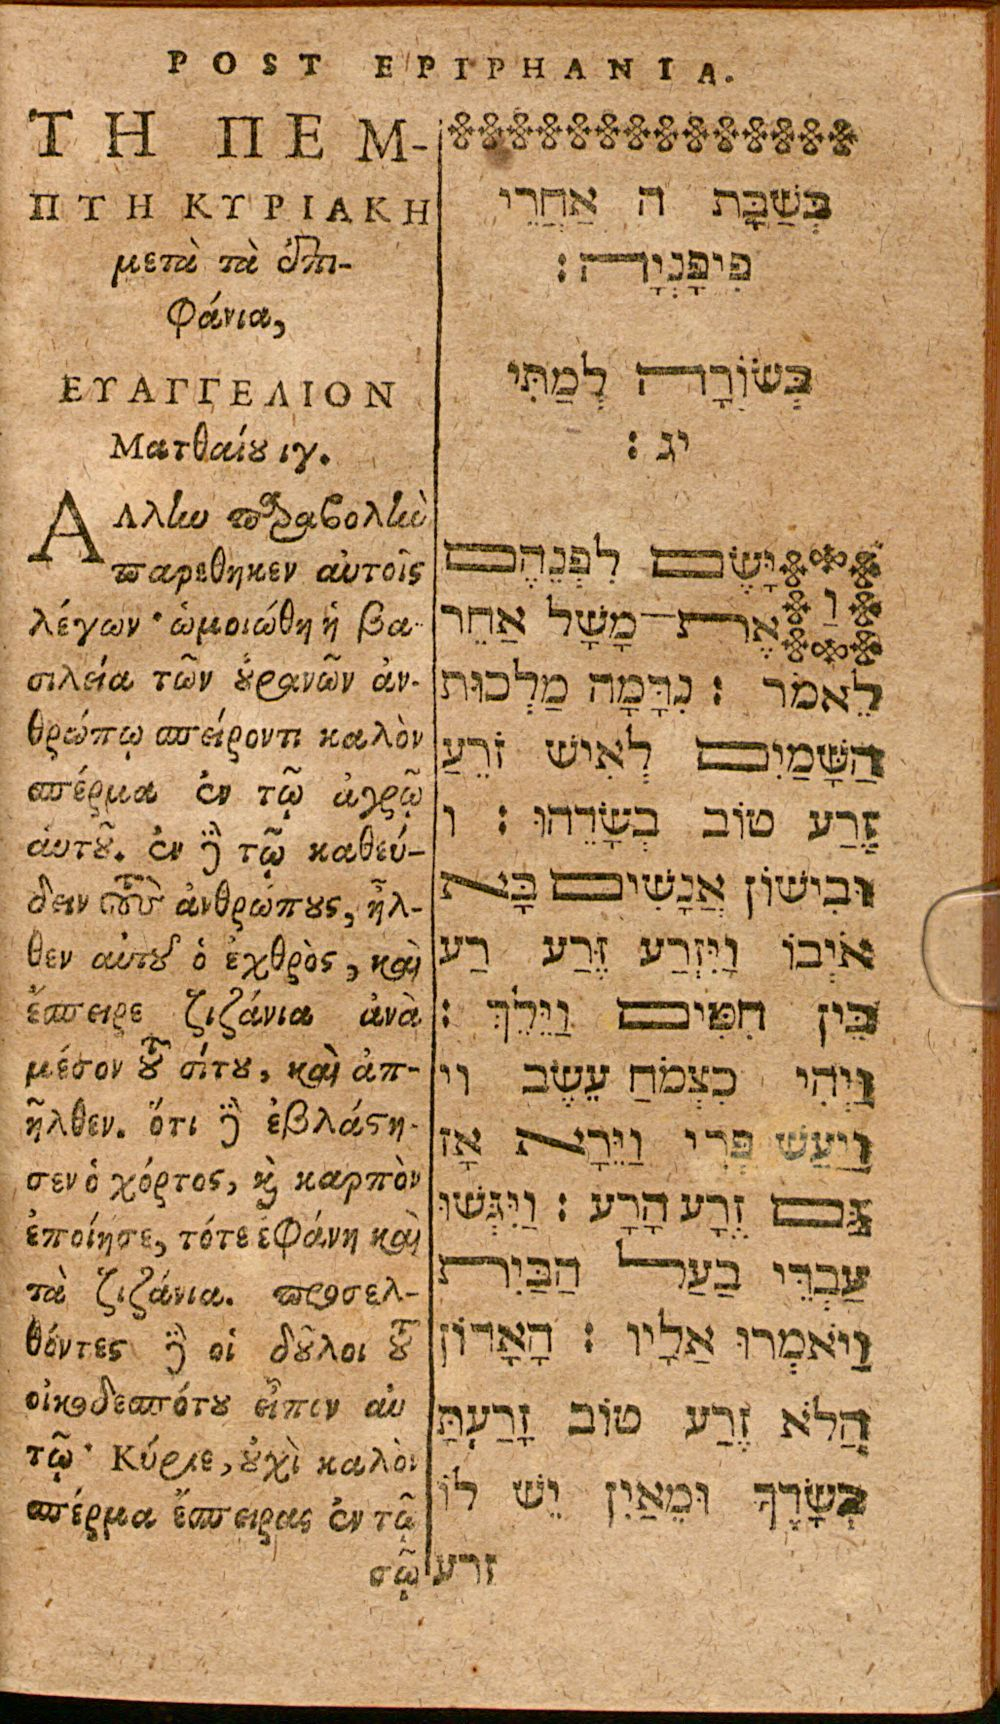 POST EPIPHANIA.
ΤΗ ΠΕΜ-
ΠΤΗ ΚΥΡΙΑΚΗ
μετὰ τὰ ἐπι-
φάνια,
ΕΥΑΓΓΕΛΙΟΝ
Ματθαίου ιγ.
ΑΛλην παραβολὴν
παρεθηκεν αὐτοῖς
λέγων· ὡμοιώθη ἡ βα-
σιλεία τῶν οὐρανῶν ἀν-
θρώπῳ σπείροντι καλὸν
σπέρμα ἐν τῷ ἀγρῷ
αὑτοῦ. ἐν δὲ τῷ καθεύ-
δειν τοὺς ἀνθρώπους, ἦλ-
θεν αὐτοῦ ὁ ἐχθρὸς, καὶ
ἔσπειρε ζιζάνια ἀνὰ
μέσον τοῦ σίτου, καὶ ἀπ-
ῆλθεν. ὅτι δὲ ἐβλάστη-
σεν ὁ χόρτος, καὶ καρπὸν
ἐποίησε, τότε ἐφάνη καὶ
τὰ ζιζάνια. προσελ-
θόντες δὲ οἱ δοῦλοι τοῦ
οἰκοδεσπότου εἶπον αὐ
τῷ· Κύριε, οὐχὶ καλὸν
σπέρμα ἔσπειρας ἐν τῷ
σῷ
בְּשַׁבָּת ה אַחֲרֵי
פִיפָּנְיָה :
בְּשׂוֹרָה לְמַתִּי
יג :
וַיָּשֶׂם לִפְנֵהֶם
אֶת־מָשָׁל אַחֵר
לֵאמֹר : נִדָּמָה מַלְכוּת
הַשָּׁמַיִם לְאִישׁ זֹרֵעַ
זֶרַע טוֹב בְּשָׂדֵהוּ : ו
וּבִישׁוֹן אֲנָשִׁים בָּא
אֹיְבוֹ וַיִּזְרַע זֶרַע רַע
בֵּין חִטִּים וַיֵּלֵךְ :
וַיְהִי כִצְמֹחַ עֵשֶׂב וי
וַיַּעַשׂ פְּרִי וַיֵּרָא אָז
גַּם זֶרָע הָרָע : וַיִּגְּשׁוּ
עַבְדֵי בַעַל הַבַּיִת
וַיֹּאמְרוּ אֵלָיו : הָאָדוֹן
הֲלֹא זֶרַע טוֹב זָרַעְתָּ
בְּשָׂדֶךָ וּמֵאַיִן יֵשׁ לוֹ
זרע